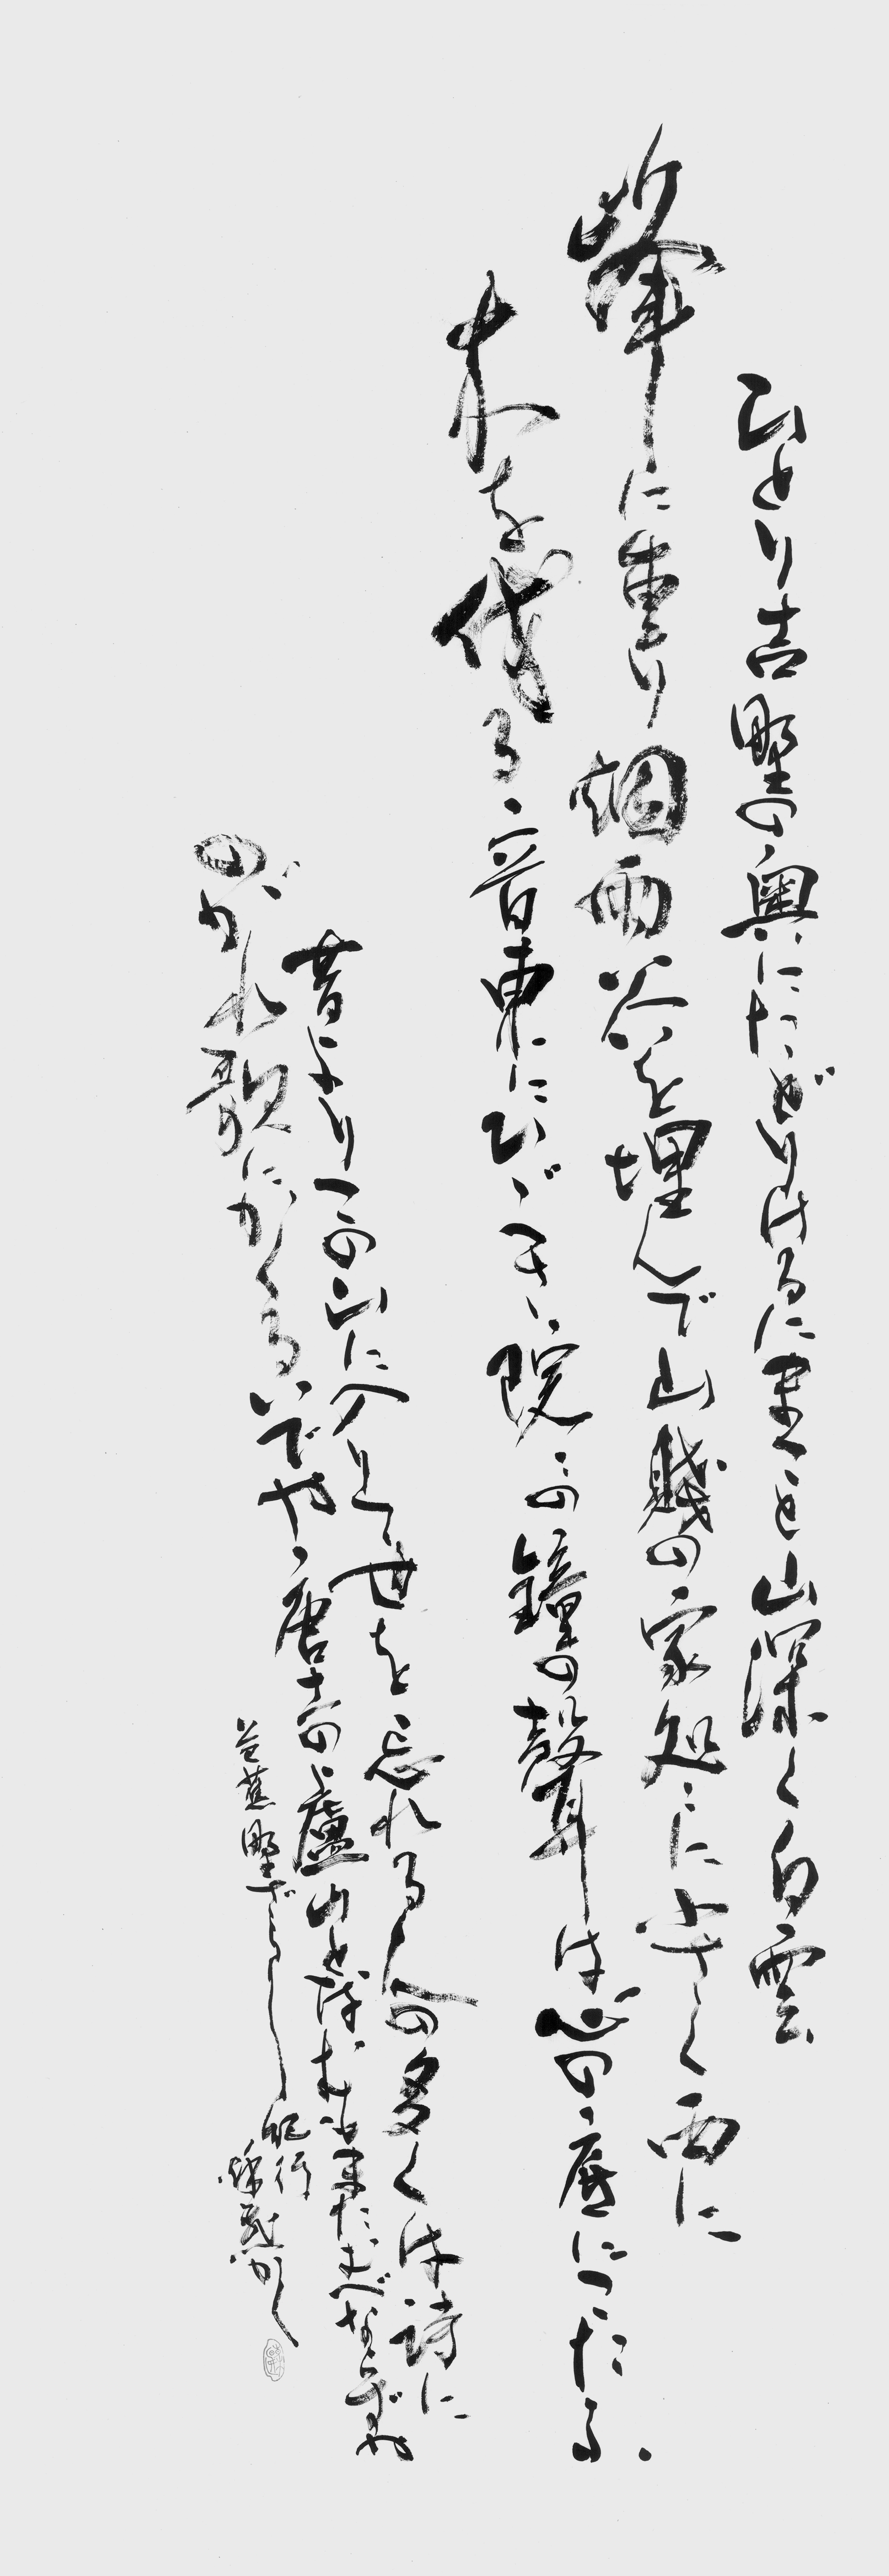 ひとり吉野の奥にたどりけるにまこと山深く白雲
峰に重り烟雨谷を埋んで山賤の家処々に小さく西に
木を伐る音東にひゞき院々の鐘の聲は心の底にこたふ
昔よりこの山に入りて世を忘れる人の多くは詩に
のがれ歌にかくるいでや唐土の廬山と謂むも又むべならずや
芭蕉野ざらし紀行
かく